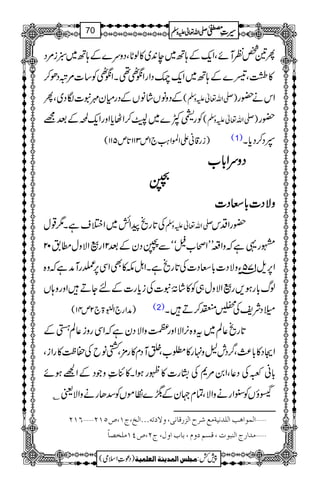 سیرتِ مصطفی صلی اللہ تعالٰی علیہ وسلم 70
پھر تین شخص نظر آئے، ایک کے ہاتھ میں چاندی کا لوٹا، دوسرے کے ہاتھ میں سبز زمرد
کا طشت، تیسرے کے ہاتھ میں ایک چمک دار انگوٹھی تھی۔ انگوٹھی کو سات مرتبہ دھو کر
اس نے حضور (صلی اللہ تعالٰی علیہ وسلم) کے دونوں شانوں کے درمیان مہر نبوت لگا دی، پھر
حضور (صلی اللہ تعالٰی علیہ وسلم) کو ریشمی کپڑے میں لپیٹ کر اٹھایا اور ایک لمحہ کے بعد مجھے
سپرد کر دیا۔ (1) (زرقانی علی المواہب ج۱ ص۱۱۳ تا ص۱۱۵)
دوسرا باب
بچپن
ولادت باسعادت
حضور اقدس صلی اللہ تعالٰی علیہ وسلم کی تاریخ پیدائش میں اختلاف ہے۔ مگر قول
مشہور یہی ہے کہ واقعہ ”اصحابِ فیل“ سے پچپن دن کے بعد ۱۲ ربیع الاول مطابق ۲۰
اپریل ۵۷۱ء ولادت باسعادت کی تاریخ ہے۔ اہلِ مکہ کا بھی اسی پر عملدرآمد ہے کہ وہ
لوگ بارہویں ربیع الاول ہی کو کاشانہ نبوت کی زیارت کے لئے جاتے ہیں اور وہاں
میلاد شریف کی محفلیں منعقد کرتے ہیں۔ (2) (مدارج النبوۃ ج۲ ص۱۴)
تاریخِ عالم میں یہ وہ نرالا اور عظمت والا دن ہے کہ اسی روز عالمِ ہستی کے
ایجاد کا باعث، گردشِ لیل و نہار کا مطلوب، خلقِ آدم کا رمز، کشتیِ نوح کی حفاظت کا راز،
بانیِ کعبہ کی دعا، ابنِ مریم کی بشارت کا ظہور ہوا۔ کائناتِ وجود کے الجھے ہوئے
گیسوؤں کو سنوارنے والا، تمام جہان کے بگڑے نظاموں کو سدھارنے والا یعنی
المواهب اللدنیة مع شرح الزرقانی، ولادته...الخ، ج۱، ص۲۱۵۔۲۱۶
مدارج النبوت، قسم دوم، باب اول، ج۲، ص۱۴ ملخصاً
پیش کش: مجلس المدینة العلمیة (دعوتِ اسلامی)